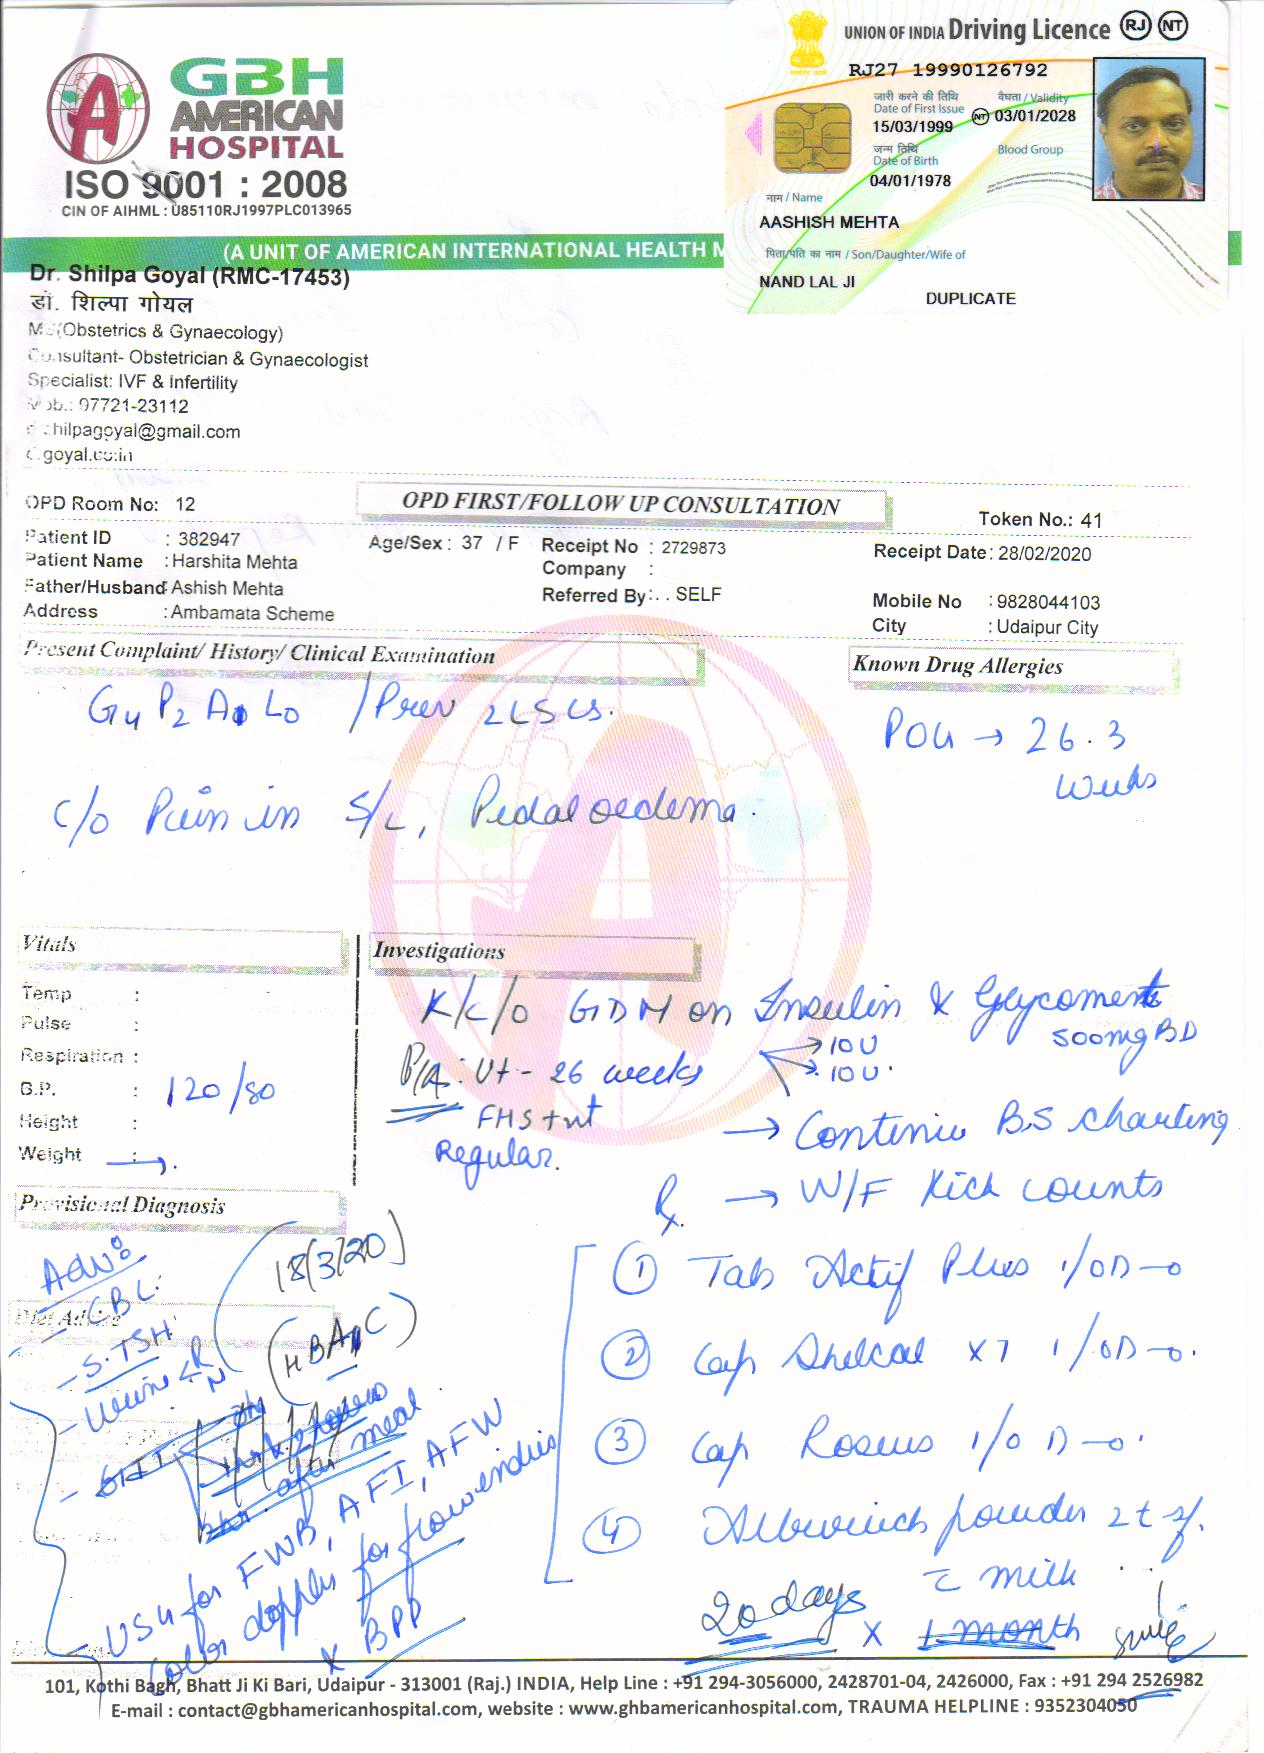 GBH
AMERICAN
HOSPITAL
ISO 9001 : 2008
CIN OF AIHML : U85110RJ1997PLC013965
(A UNIT OF AMERICAN INTERNATIONAL HEALTH M
UNION OF INDIA Driving Licence RJ NT
RJ27 19990126792
जारी करने की तिथि
Date of First Issue
15/03/1999
वैधता / Validity
NT 03/01/2028
जन्म तिथि
Date of Birth
04/01/1978
Blood Group
नाम / Name
AASHISH MEHTA
पिता/पति का नाम / Son/Daughter/Wife of
NAND LAL JI
DUPLICATE
Dr. Shilpa Goyal (RMC-17453)
डॉ. शिल्पा गोयल
(Obstetrics & Gynaecology)
Consultant- Obstetrician & Gynaecologist
Specialist: IVF & Infertility
Mob.: 97721-23112
hilpagoyal@gmail.com
goyal.co.in
OPD Room No: 12
OPD FIRST/FOLLOW UP CONSULTATION
Token No.: 41
Patient ID : 382947
Age/Sex : 37 / F
Receipt No : 2729873
Receipt Date: 28/02/2020
Patient Name : Harshita Mehta
Company :
Father/Husband: Ashish Mehta
Referred By: . . SELF
Mobile No : 9828044103
Address : Ambamata Scheme
City : Udaipur City
Present Complaint/ History/ Clinical Examination
Known Drug Allergies
G4 P2 A1 L0 / Prev 2 LSCS.
POG → 26.3
weeks
C/O Pain in S/L, Pedal oedema.
Vitals
Investigations
Temp :
Pulse :
Respiration :
B.P. : 120/80
Height :
Weight :
K/C/O GDM on Insulin & Glycomet
500mg BD
→ 10 U
→ 10 U
P/A : Ut - 26 weeks
FHS +nt
Regular.
→ Continue BS charting
Rx → W/F Kick counts
Provisional Diagnosis
Adv:
- CBC
Diet Advice
- S. TSH
- Urine R/M
18/3/20
(HBA1C)
after meal
USG for FWB, AFI, AFW
color doppler for flow indices
x BPP
① Tab Actif Plus 1/OD
② Cap Shelcal x7 1/OD
③ Cap Rosens 1/OD
④ powder 2 tsf.
c milk
20 days x 1 month
101, Kothi Bagh, Bhatt Ji Ki Bari, Udaipur - 313001 (Raj.) INDIA, Help Line : +91 294-3056000, 2428701-04, 2426000, Fax : +91 294 2526982
E-mail : contact@gbhamericanhospital.com, website : www.ghbamericanhospital.com, TRAUMA HELPLINE : 9352304050